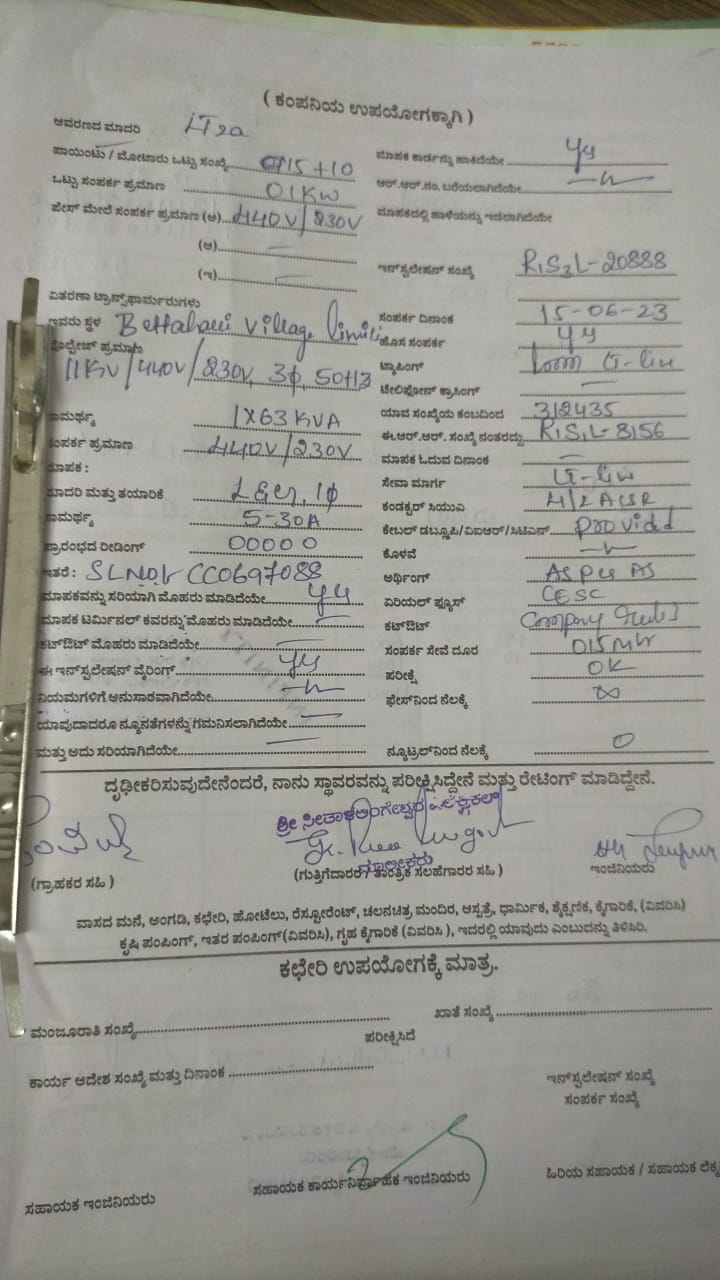 ( ಕಂಪನಿಯ ಉಪಯೋಗಕ್ಕಾಗಿ )
ಆವರಣದ ಮಾದರಿ LT2a
ಪಾಯಿಂಟು / ಮೋಟಾರು ಒಟ್ಟು ಸಂಖ್ಯೆ 15+10
ಮಾಪಕ ಕಾರ್ಡನ್ನು ಹಾಕಿದೆಯೇ
ಒಟ್ಟು ಸಂಪರ್ಕ ಪ್ರಮಾಣ 01KW
ಆರ್.ಆರ್.ನಂ. ಬರೆಯಲಾಗಿದೆಯೇ
ಪೇಸ್ ಮೇಲೆ ಸಂಪರ್ಕ ಪ್ರಮಾಣ (ಅ) 440V/230V
ಮಾಪಕದಲ್ಲಿ ಹಾಳೆಯನ್ನು ಇಡಲಾಗಿದೆಯೇ
(ಆ)
(ಇ)
ಇನ್‌ಸ್ಟಲೇಷನ್ ಸಂಖ್ಯೆ RS3L-20888
ವಿತರಣಾ ಟ್ರಾನ್ಸ್‌ಫಾರ್ಮರುಗಳು
ಇವರು ಸ್ಥಳ Village
ಸಂಪರ್ಕ ದಿನಾಂಕ 15-06-23
ವೋಲ್ಟೇಜ್ ಪ್ರಮಾಣ
ಹೊಸ ಸಂಪರ್ಕ
11KV/440V/230V, 3φ, 50HZ
ಟ್ಯಾಪಿಂಗ್
ಟೆಲಿಫೋನ್ ಕ್ರಾಸಿಂಗ್
ಸಾಮರ್ಥ್ಯ 1X63 KVA
ಯಾವ ಸಂಖ್ಯೆಯ ಕಂಬದಿಂದ 312435
ಸಂಪರ್ಕ ಪ್ರಮಾಣ 440V/230V
ಈ.ಆರ್.ಆರ್. ಸಂಖ್ಯೆ ನಂತರದ್ದು
ಮಾಪಕ :
ಮಾಪಕ ಓದುವ ದಿನಾಂಕ
ಮಾದರಿ ಮತ್ತು ತಯಾರಿಕೆ 1φ
ಸೇವಾ ಮಾರ್ಗ
ಸಾಮರ್ಥ್ಯ 5-30A
ಕಂಡಕ್ಟರ್ ಸಿಯುವಿ
ಪ್ರಾರಂಭದ ರೀಡಿಂಗ್ 00000
ಕೇಬಲ್ ಡಬ್ಲ್ಯೂಪಿ/ವಿಐಆರ್/ಸಿಟಿಎಸ್ provided
ಇತರೆ : CC0697088
ಕೊಳವೆ
ಮಾಪಕವನ್ನು ಸರಿಯಾಗಿ ಮೊಹರು ಮಾಡಿದೆಯೇ
ಅರ್ಥಿಂಗ್
ಮಾಪಕ ಟರ್ಮಿನಲ್ ಕವರನ್ನು ಮೊಹರು ಮಾಡಿದೆಯೇ
ಏರಿಯಲ್ ಫ್ಯೂಸ್ CESC
ಕಟ್‌ಔಟ್ ಮೊಹರು ಮಾಡಿದೆಯೇ
ಕಟ್‌ಔಟ್ Company
ಈ ಇನ್‌ಸ್ಟಲೇಷನ್ ವೈರಿಂಗ್
ಸಂಪರ್ಕ ಸೇವೆ ದೂರ
ನಿಯಮಗಳಿಗೆ ಅನುಸಾರವಾಗಿದೆಯೇ
ಪರೀಕ್ಷೆ OK
ಯಾವುದಾದರೂ ನ್ಯೂನತೆಗಳನ್ನು ಗಮನಿಸಲಾಗಿದೆಯೇ
ಫೇಸ್‌ನಿಂದ ನೆಲಕ್ಕೆ ∞
ಮತ್ತು ಅದು ಸರಿಯಾಗಿದೆಯೇ
ನ್ಯೂಟ್ರಲ್‌ನಿಂದ ನೆಲಕ್ಕೆ 0
ದೃಢೀಕರಿಸುವುದೇನೆಂದರೆ, ನಾನು ಸ್ಥಾವರವನ್ನು ಪರೀಕ್ಷಿಸಿದ್ದೇನೆ ಮತ್ತು ರೇಟಿಂಗ್ ಮಾಡಿದ್ದೇನೆ.
ಶ್ರೀ
ಮಾಲೀಕರು
(ಗ್ರಾಹಕರ ಸಹಿ )
(ಗುತ್ತಿಗೆದಾರರ / ತಾಂತ್ರಿಕ ಸಲಹೆಗಾರರ ಸಹಿ )
ಇಂಜಿನಿಯರು
ವಾಸದ ಮನೆ, ಅಂಗಡಿ, ಕಛೇರಿ, ಹೋಟೆಲು, ರೆಸ್ಟೋರೆಂಟ್, ಚಲನಚಿತ್ರ, ಮಂದಿರ, ಆಸ್ಪತ್ರೆ, ಧಾರ್ಮಿಕ, ಶೈಕ್ಷಣಿಕ, ಕೈಗಾರಿಕೆ, (ವಿವರಿಸಿ)
ಕೃಷಿ ಪಂಪಿಂಗ್, ಇತರ ಪಂಪಿಂಗ್(ವಿವರಿಸಿ), ಗೃಹ ಕೈಗಾರಿಕೆ (ವಿವರಿಸಿ ), ಇದರಲ್ಲಿ ಯಾವುದು ಎಂಬುದನ್ನು ತಿಳಿಸಿರಿ.
ಕಛೇರಿ ಉಪಯೋಗಕ್ಕೆ ಮಾತ್ರ.
ಮಂಜೂರಾತಿ ಸಂಖ್ಯೆ
ಖಾತೆ ಸಂಖ್ಯೆ
ಪರೀಕ್ಷಿಸಿದೆ
ಕಾರ್ಯ ಆದೇಶ ಸಂಖ್ಯೆ ಮತ್ತು ದಿನಾಂಕ
ಇನ್‌ಸ್ಟಲೇಷನ್ ಸಂಖ್ಯೆ
ಸಂಪರ್ಕ ಸಂಖ್ಯೆ
ಸಹಾಯಕ ಇಂಜಿನಿಯರು
ಸಹಾಯಕ ಕಾರ್ಯನಿರ್ವಾಹಕ ಇಂಜಿನಿಯರು
ಹಿರಿಯ ಸಹಾಯಕ / ಸಹಾಯಕ